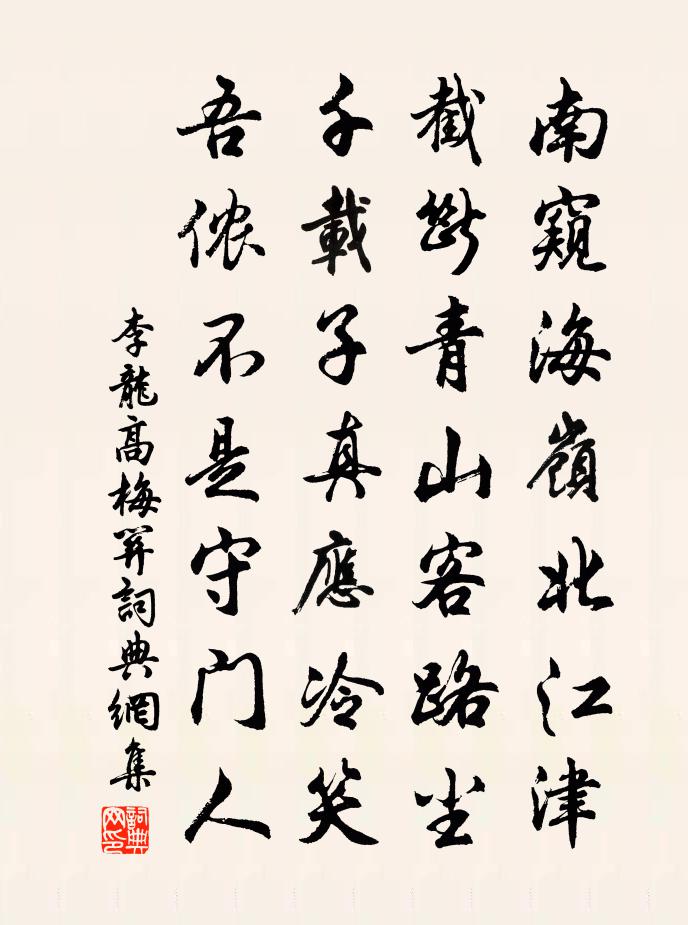 南窺海嶺北江津
截斷青山客路塵
千載子真應冷笑
吾侬不是守門人
李龍高梅關詞典網集
詞典網印